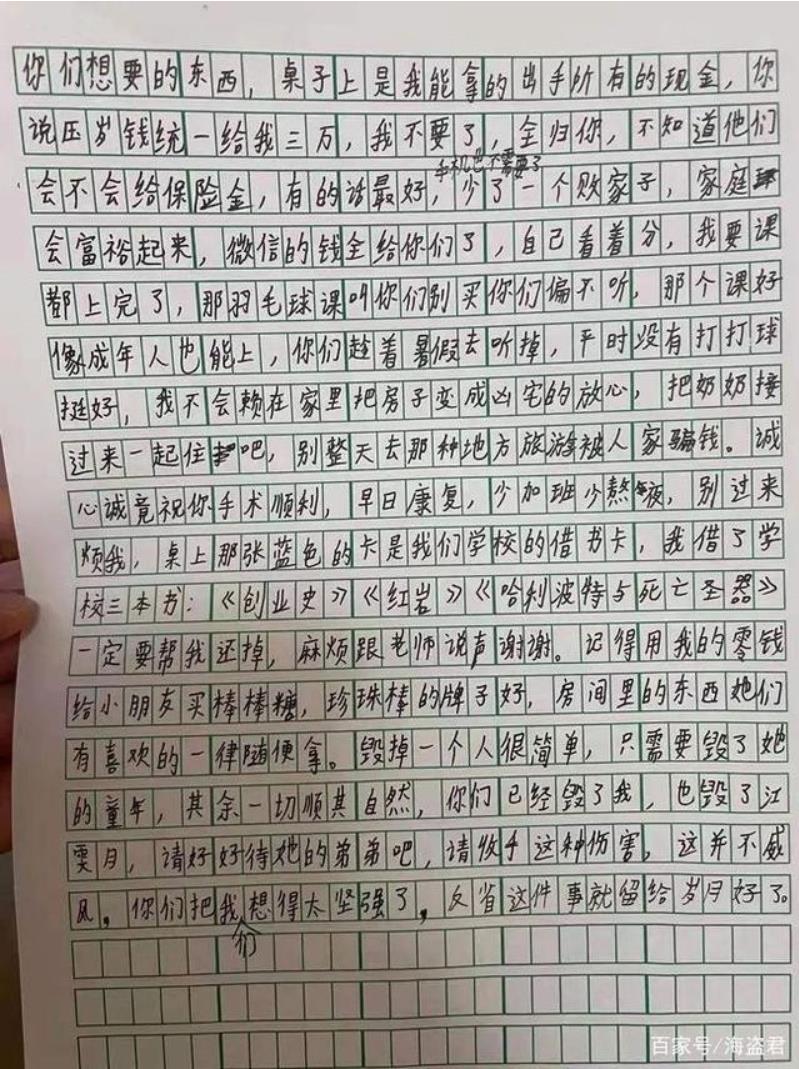 你们想要的东西，桌子上是我能拿的出手所有的现金，你
说压岁钱统一给我三万，我不要了，全归你，不知道他们
手机也不需要了
会不会给保险金，有的话最好，少了一个败家子，家庭
会富裕起来，微信的钱全给你们了，自己看着分，我要课
都上完了，那羽毛球课叫你们别买你们偏不听，那个课好
像成年人也能上，你们趁着暑假去听掉，平时没有打打球
挺好，我不会赖在家里把房子变成凶宅的放心，把奶奶接
过来一起住吧，别整天去那种地方旅游被人家骗钱。诚
心诚竟祝你手术顺利，早日康复，少加班少熬夜，别过来
烦我，桌上那张蓝色的卡是我们学校的借书卡，我借了学
校三本书：《创业史》《红岩》《哈利波特与死亡圣器》
一定要帮我还掉，麻烦跟老师说声谢谢。记得用我的零钱
给小朋友买棒棒糖，珍珠棒的牌子好，房间里的东西她们
有喜欢的一律随便拿。毁掉一个人很简单，只需要毁了她
的童年，其余一切顺其自然，你们已经毁了我，也毁了江
雯月，请好好待她的弟弟吧，请收手这种伤害，这并不威
风，你们把我想得太坚强了，反省这件事就留给岁月好了。
们
百家号/海盗君